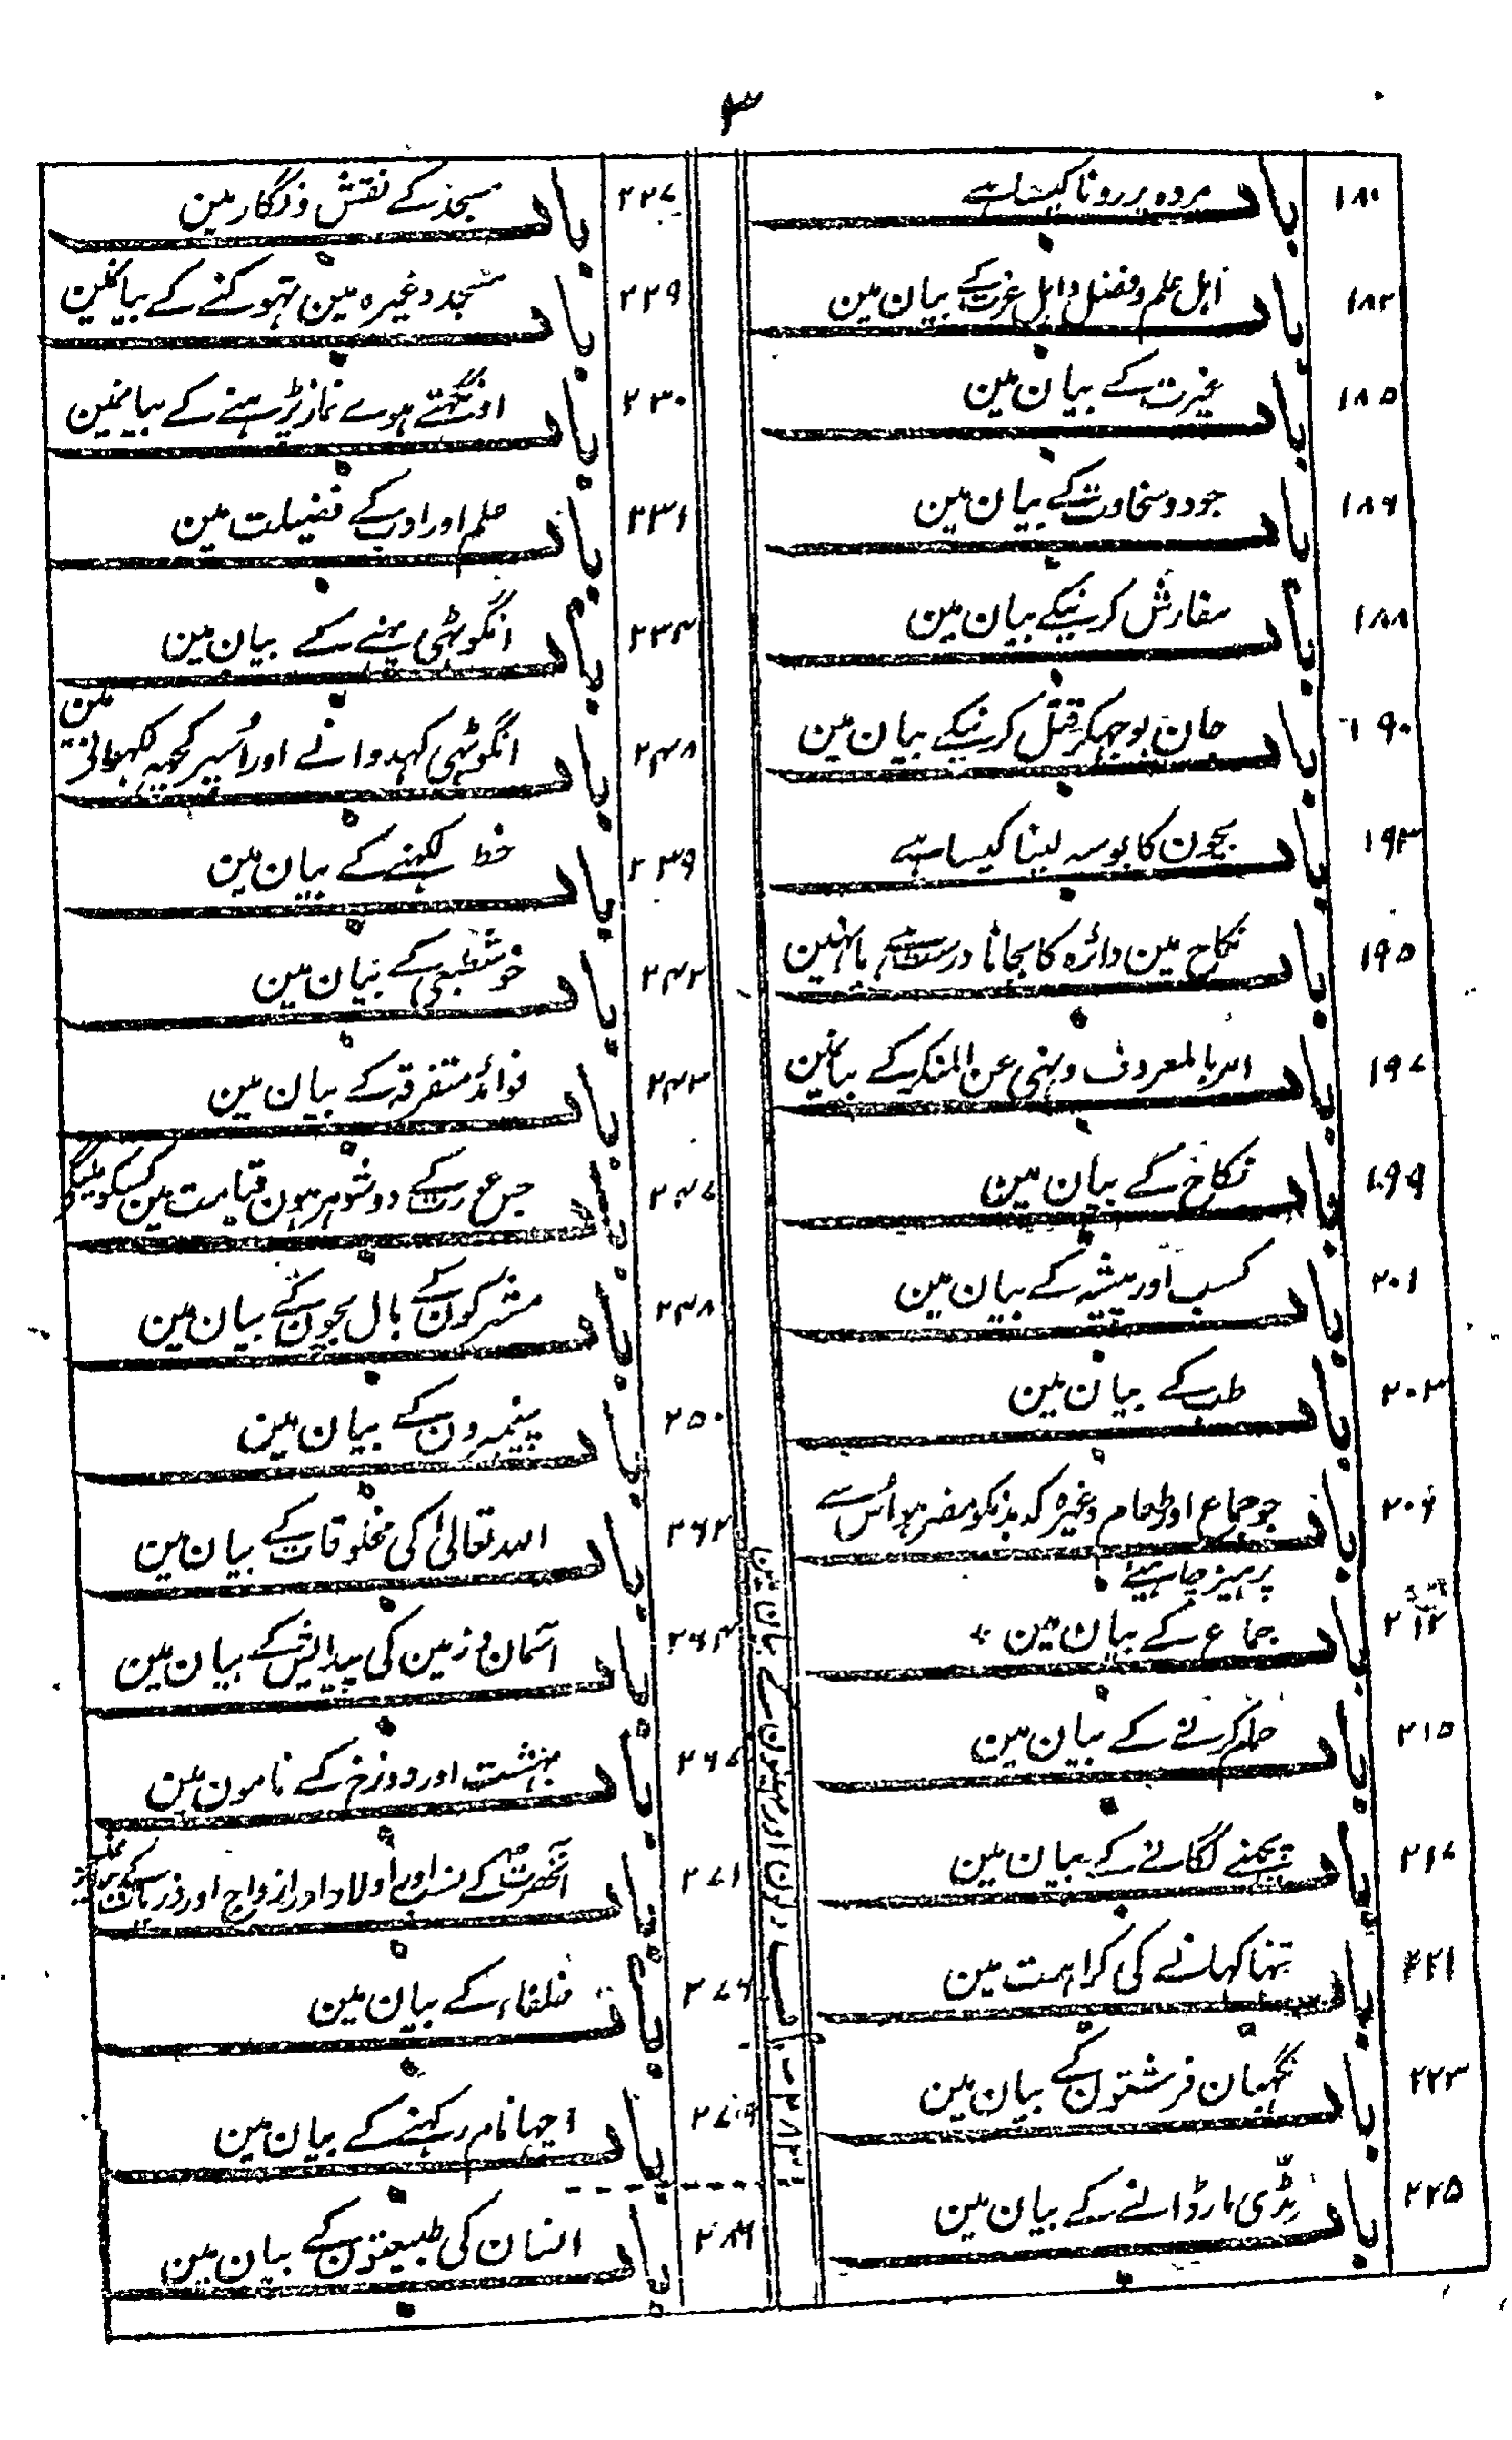 ۳
۱۸۰ باب مردہ پر رونا کیسا ہے
۱۸۲ باب اہل علم و فضل و اہل عزت کے بیان مین
۱۸۵ باب غیرت کے بیان مین
۱۸۶ باب جود و سخاوت کے بیان مین
۱۸۸ باب سفارش کرنیکے بیان مین
۱۹۰ باب جان بوجہکر قتل کرنیکے بیان مین
۱۹۳ باب بچون کا بوسہ لینا کیسا ہے
۱۹۵ باب نکاح مین دائرہ کا بجانا درست ہے یا نہین
۱۹۷ باب امر بالمعروف و نہی عن المنکر کے بیانمین
۱۹۹ باب نکاح کے بیان مین
۲۰۱ باب کسب اور پیشہ کے بیان مین
۲۰۳ باب طب کے بیان مین
۲۰۶ باب جو جماع اور طعام وغیرہ کہ بدنکو مضر ہو اُس سے
پرہیز چاہیے
۲۱۲ باب جماع کے بیان مین
۲۱۵ باب حمام کرنے کے بیان مین
۲۱۷ باب پچھنے لگانے کے بیان مین
۲۲۱ باب تنہا کہانے کی کراہت مین
۲۲۳ باب نگہبان فرشتون کے بیان مین
۲۲۵ باب ٹڈی مار ڈالنے کے بیان مین
۲۲۷ باب مسجد کے نقش و نگار مین
۲۲۹ باب مسجد وغیرہ مین تہوکنے کے بیانمین
۲۳۰ باب اونگہتے ہوے نماز پڑہنے کے بیانمین
۲۳۱ باب علم اور ادب کے فضیلت مین
۲۳۴ باب انگوٹہی پہنے کے بیان مین
۲۳۸ باب انگوٹہی کہدوانے اور اُسپر کچہہ لکہوانے مین
۲۳۹ باب خط لکہنے کے بیان مین
۲۴۲ باب خوشطبعی کے بیان مین
۲۴۳ باب فوائد متفرقہ کے بیان مین
۲۴۷ باب جس عورت کے دو شوہر ہون قیامت مین کسکو ملیگی
۲۴۸ باب مشرکون کے بال بچون کے بیان مین
۲۵۰ باب پیغمبرون کے بیان مین
۲۶۲ باب اللہ تعالیٰ کی مخلوقات کے بیان مین
۲۶۴ باب آسمان و زمین کی پیدایش کے بیان مین
۲۶۷ باب بہشت اور دوزخ کے نامون مین
۲۷۱ باب آنحضرت کے نسب اور اولاد اور ازواج اور
۲۷۶ باب خلفاء کے بیان مین
۲۷۹ باب اچہا نام رکہنے کے بیان مین
باب کے بیان مین ۲۸۳
باب انسان کی طبیعتون کے بیان مین